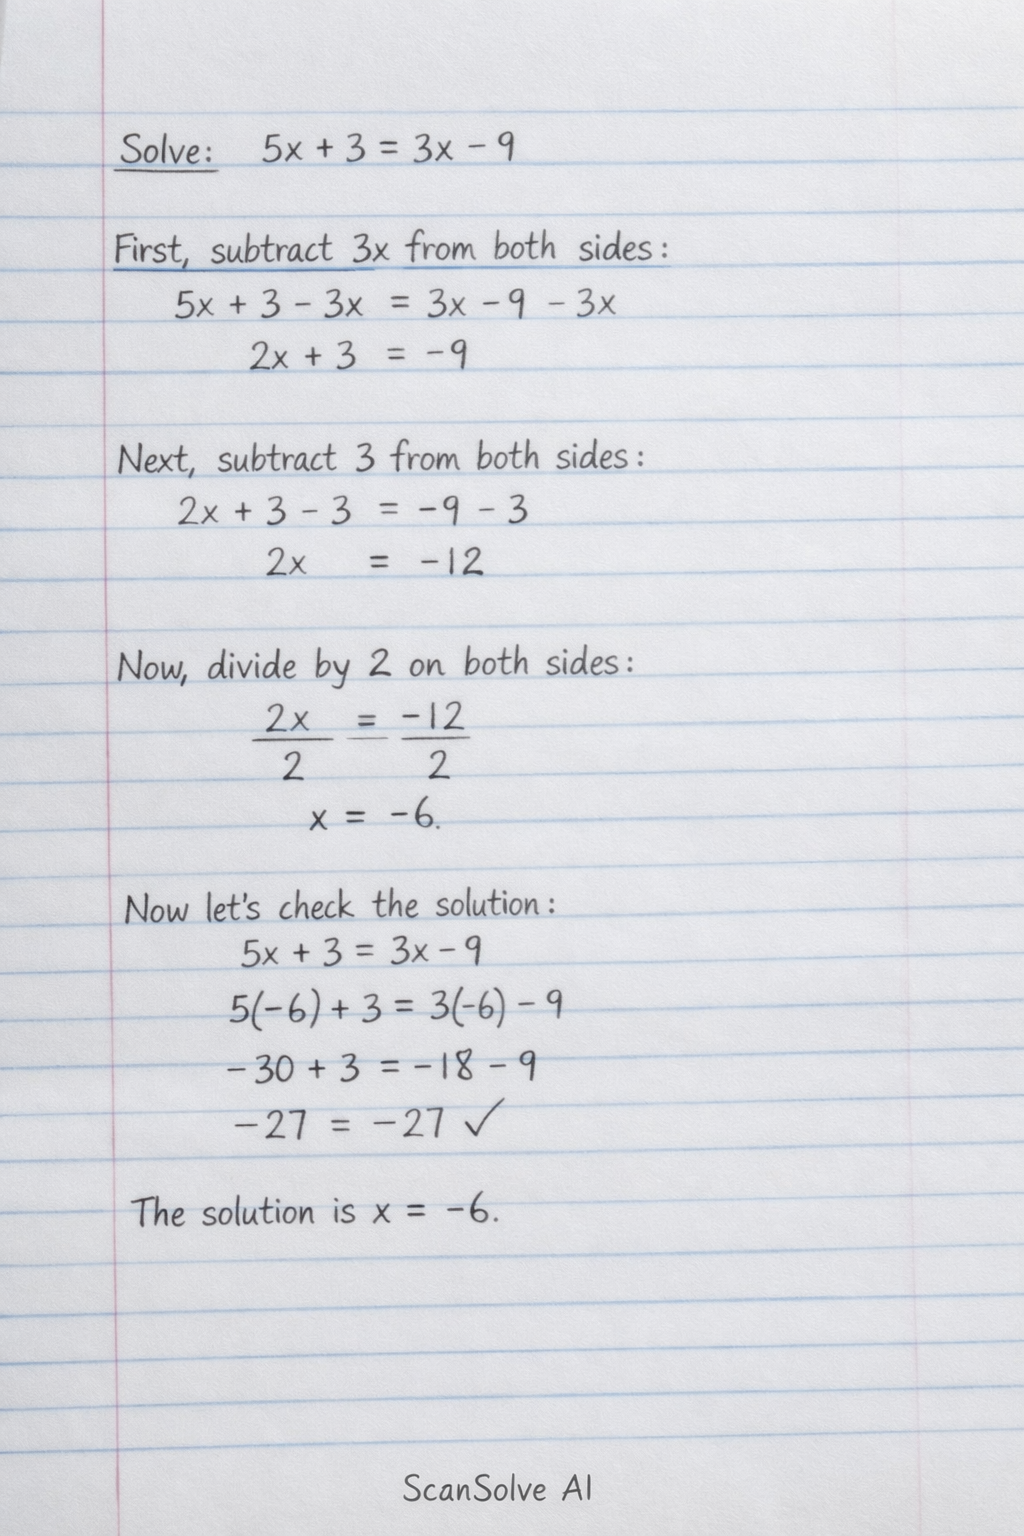 Solve: 5x + 3 = 3x - 9
First, subtract 3x from both sides:
5x + 3 - 3x = 3x - 9 - 3x
2x + 3 = -9
Next, subtract 3 from both sides:
2x + 3 - 3 = -9 - 3
2x = -12
Now, divide by 2 on both sides:
2x = -12
2 2
x = -6.
Now let's check the solution:
5x + 3 = 3x - 9
5(-6) + 3 = 3(-6) - 9
-30 + 3 = -18 - 9
-27 = -27 ✓
The solution is x = -6.
ScanSolve AI